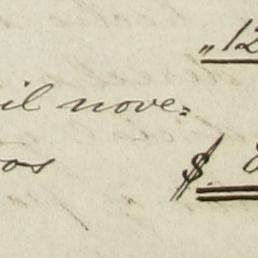 „ 12
il nove=
os $